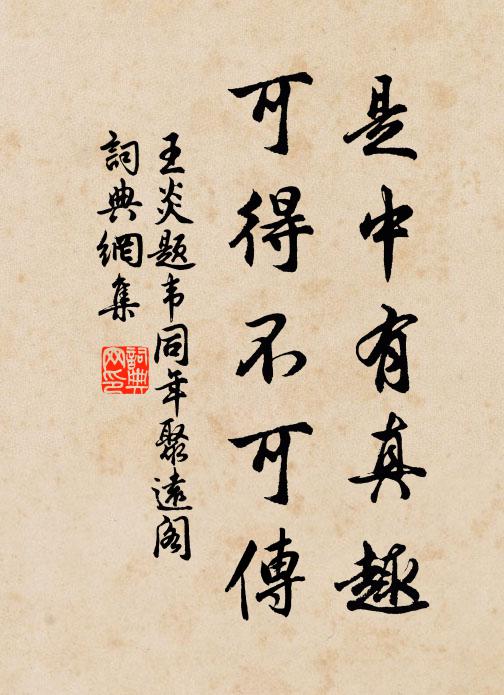 是中有真趣
可得不可傳
王炎题韦同年聚遠阁
詞典網集
詞典网印